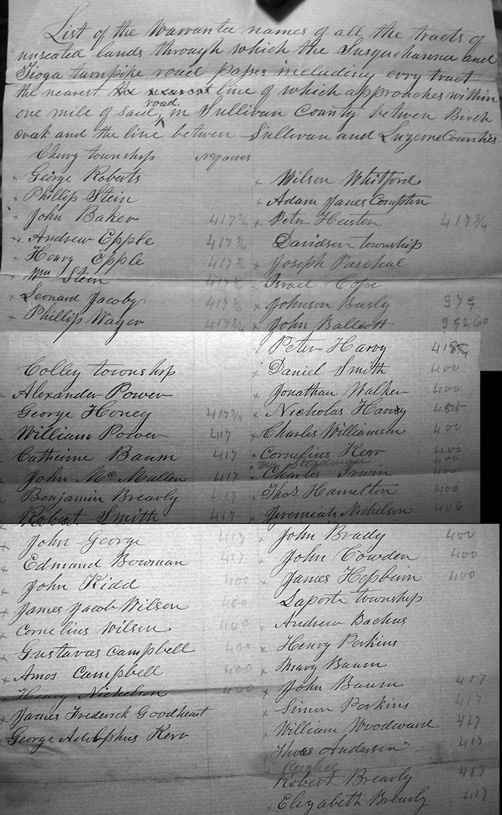 List of the Warrantee names of all the tracts of
unseated lands through which the Susquehanna and
Tioga turnpike road passes including evry tract
the nearest line of which approaches within
one mile of said road, in Sullivan County between Birch
creek and the line between Sullivan and Luzerne Counties
Cherry township No acres
George Roberts
Phillip Stein
John Baker 417¾
Andrew Epple 417¾
Henry Epple 417¾
Wm Stein 417¾
Leonard Jacoby 417¾
Phillip Wager 417¾
Colley township
Alexander Power
George Honey 417¾
William Power 417
Catherine Baum 417
John McMullen 417
Benjamin Brearly 417
Robert Smith 417
John George 417
Edmund Bowman 417
John Kidd 400
James Jacob Wilson 400
Cornelius Wilson 400
Gustavas Campbell 400
Amos Campbell 400
Henry Nicholson 400
James Frederick Goodheart
George Adolphus Kerr
Wilson Whitford
Adam James Compton
Peter Heister 417¾
Davidson township
Joseph Paschal
Israel Cope
Johnson Beasly 375
John Balliott
Peter Harvy
Daniel Smith 400
Jonathan Walker 400
Nicholas Harvy
Charles Williamson 400
Cornelius Kerr 400
Charles Irwin 400
Thos Hamelton 400
Jeremiah Nicholson 400
John Brady 400
John Cowden 400
James Hepburn 400
Laporte township
Andrew Backus
Henry Perkins
Mary Baum
John Baum 417
Simon Perkins 417
William Woodward 417
Thos Anderson 417
Robert Brearly 417
Elizabeth Brearly 417